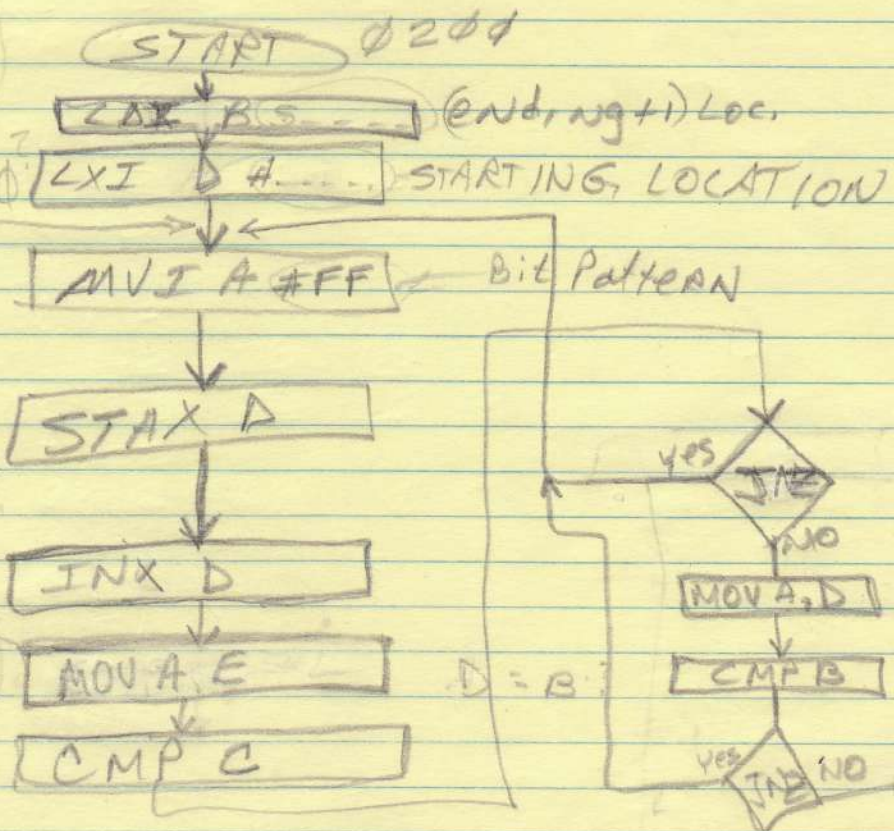 START 0200
LXI B (ending+1) Loc.
LXI D #..... STARTING LOCATION
MVI A #FF Bit PatteRN
STAX D
INX D
MOV A E
CMP C
yes JNZ
NO
MOV A,D
D = B CMP B
yes JNZ NO